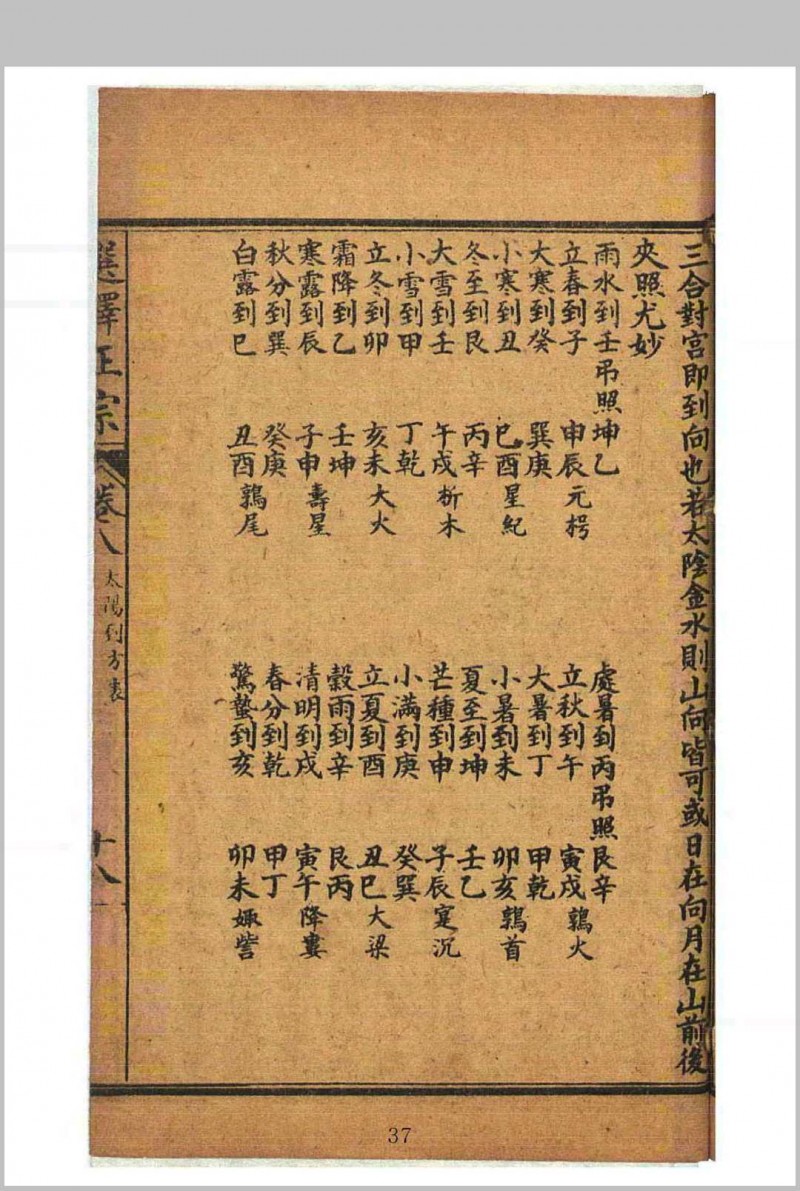 三合對宮即到向也若太陰金水則山向皆可或日在向月在山前後
夾照尤妙
雨水到壬弔照坤乙 處暑到丙弔照艮辛
立春到子 申辰元枵 立秋到午 寅戌鶉火
大寒到癸 巽庚 大暑到丁 甲乾
小寒到丑 巳酉星紀 小暑到未 卯亥鶉首
冬至到艮 丙辛 夏至到坤 壬乙
大雪到壬 午戌析木 芒種到申 子辰寔沉
小雪到甲 丁乾 小滿到庚 癸巽
立冬到卯 亥未大火 立夏到酉 丑巳大梁
霜降到乙 壬坤 穀雨到辛 艮丙
寒露到辰 子申壽星 清明到戌 寅午降婁
秋分到巽 癸庚 春分到乾 甲丁
白露到巳 丑酉鶉尾 驚蟄到亥 卯未娵訾
選擇正宗 卷八 太陽到方表 十八
37